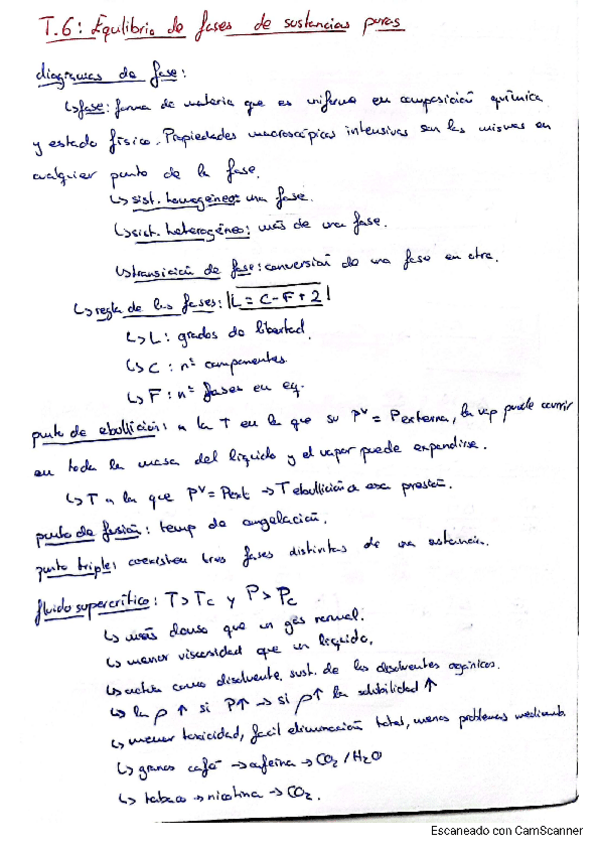 T.6: Equlibrio de fases de sustancias puras
diagramas de fase:
↳ fase: forma de materia que es uniforme en composición química
y estado físico. Propiedades macroscópicas intensivas son las mismas en
cualquier punto de la fase.
↳ sist. homogéneo: una fase.
↳ sist. heterogéneo: más de una fase.
↳ transición de fase: conversión de una fase en otra.
↳ regla de las fases: |L = C - F + 2|
↳ L: grados de libertad.
↳ C: nº componentes.
↳ F: nº fases en eq.
punto de ebullición: a la T en la que su Pᵛ = Pexterna, la vap puede ocurrir
en toda la masa del líquido y el vapor puede expandirse.
↳ T a la que Pᵛ = Pext → T ebullición a esa presión.
punto de fusión: temp de congelación.
punto triple: coexisten tres fases distintas de una sustancia.
fluido supercrítico: T > Tc y P > Pc
↳ más denso que un gas normal.
↳ menor viscosidad que un líquido.
↳ actúa como disolvente, sust. de los disolventes orgánicos.
↳ la ρ ↑ si P↑ → si ρ↑ la solubilidad ↑
↳ menor toxicidad, facil eliminación total, menos problemas medioamb.
↳ granos café → cafeína → CO₂ / H₂O
↳ tabaco → nicotina → CO₂.
Escaneado con CamScanner